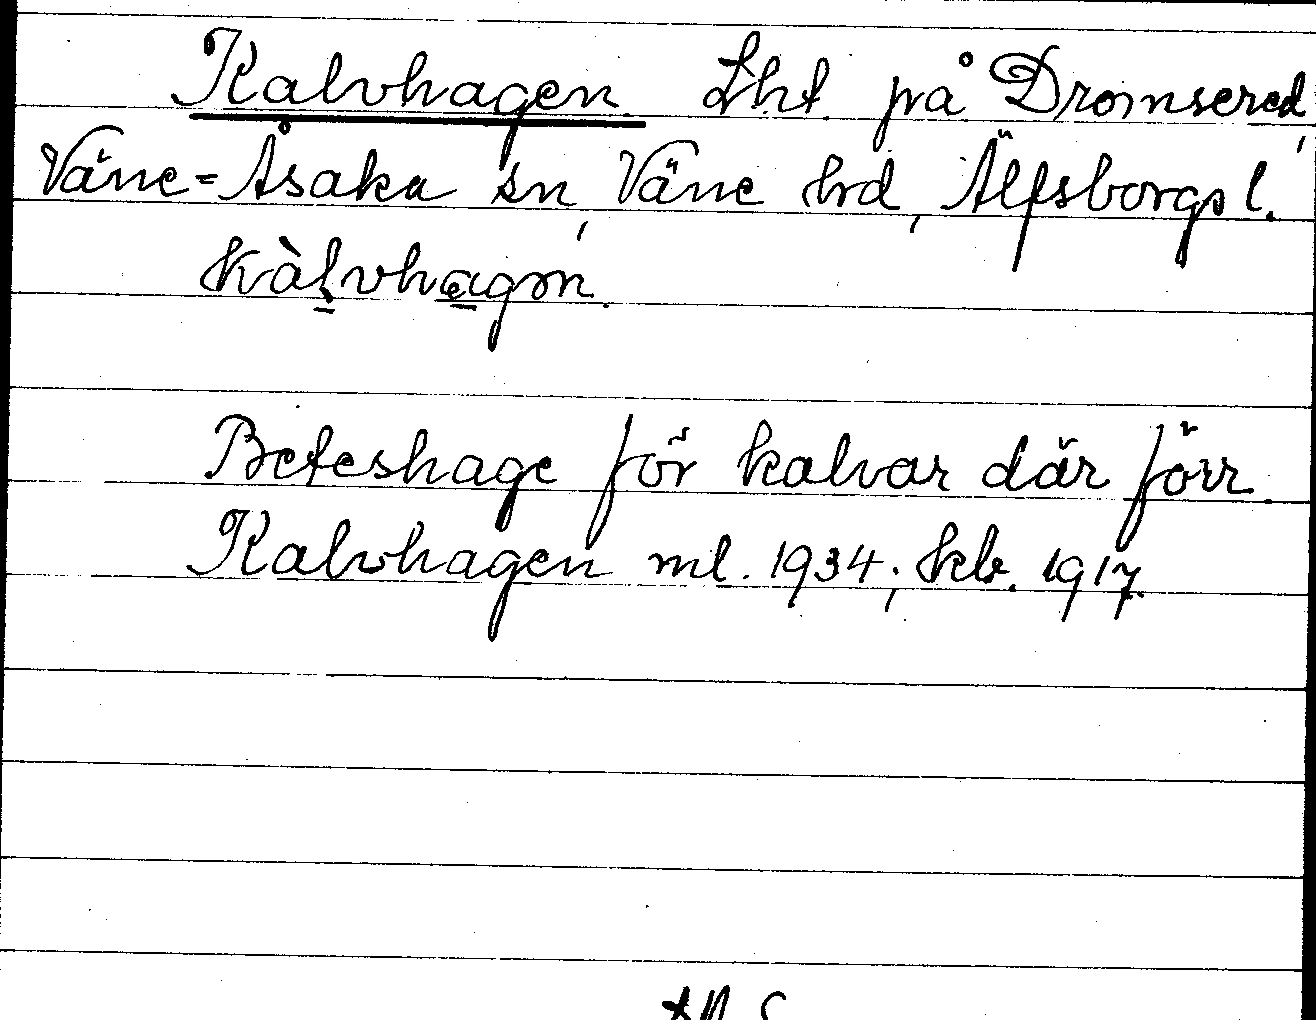 Kalvhagen Lht på Dromsered,
Väne=Åsaka sn, Väne hrd, Älfsborgs l.
Kàlvhagen.
Beteshage för kalvar där förr.
Kalvhagen ml. 1934; skb. 1917.